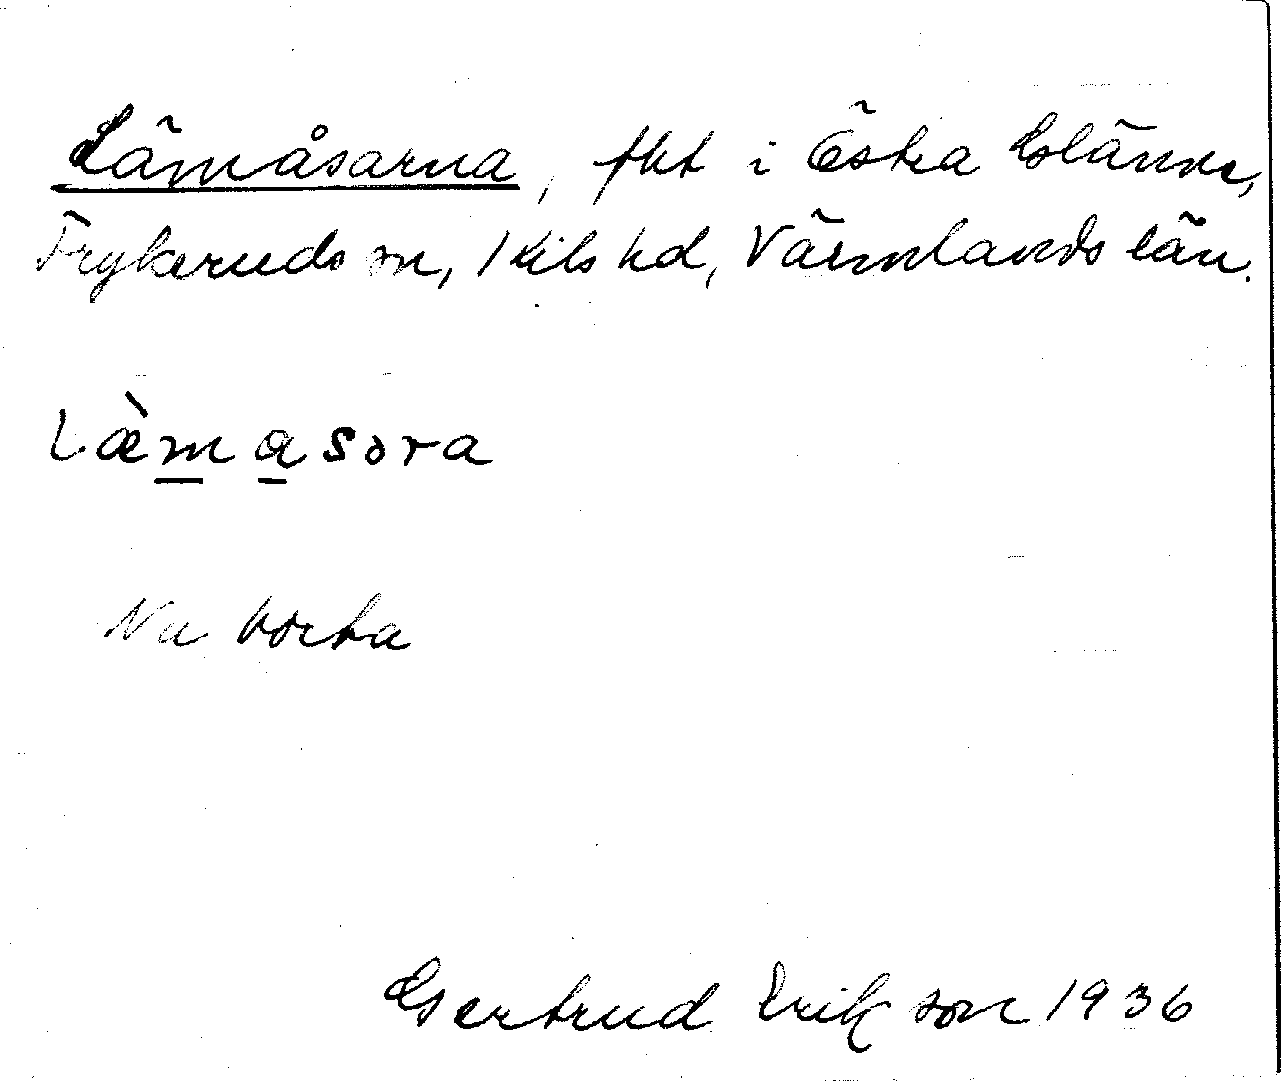 Lämåsarna, fkt i Östra Glänne,
Frykeruds sn, Kils hd, Värmlands län.
Læ̀masora
Nu borta
Gertrud Erikson 1936